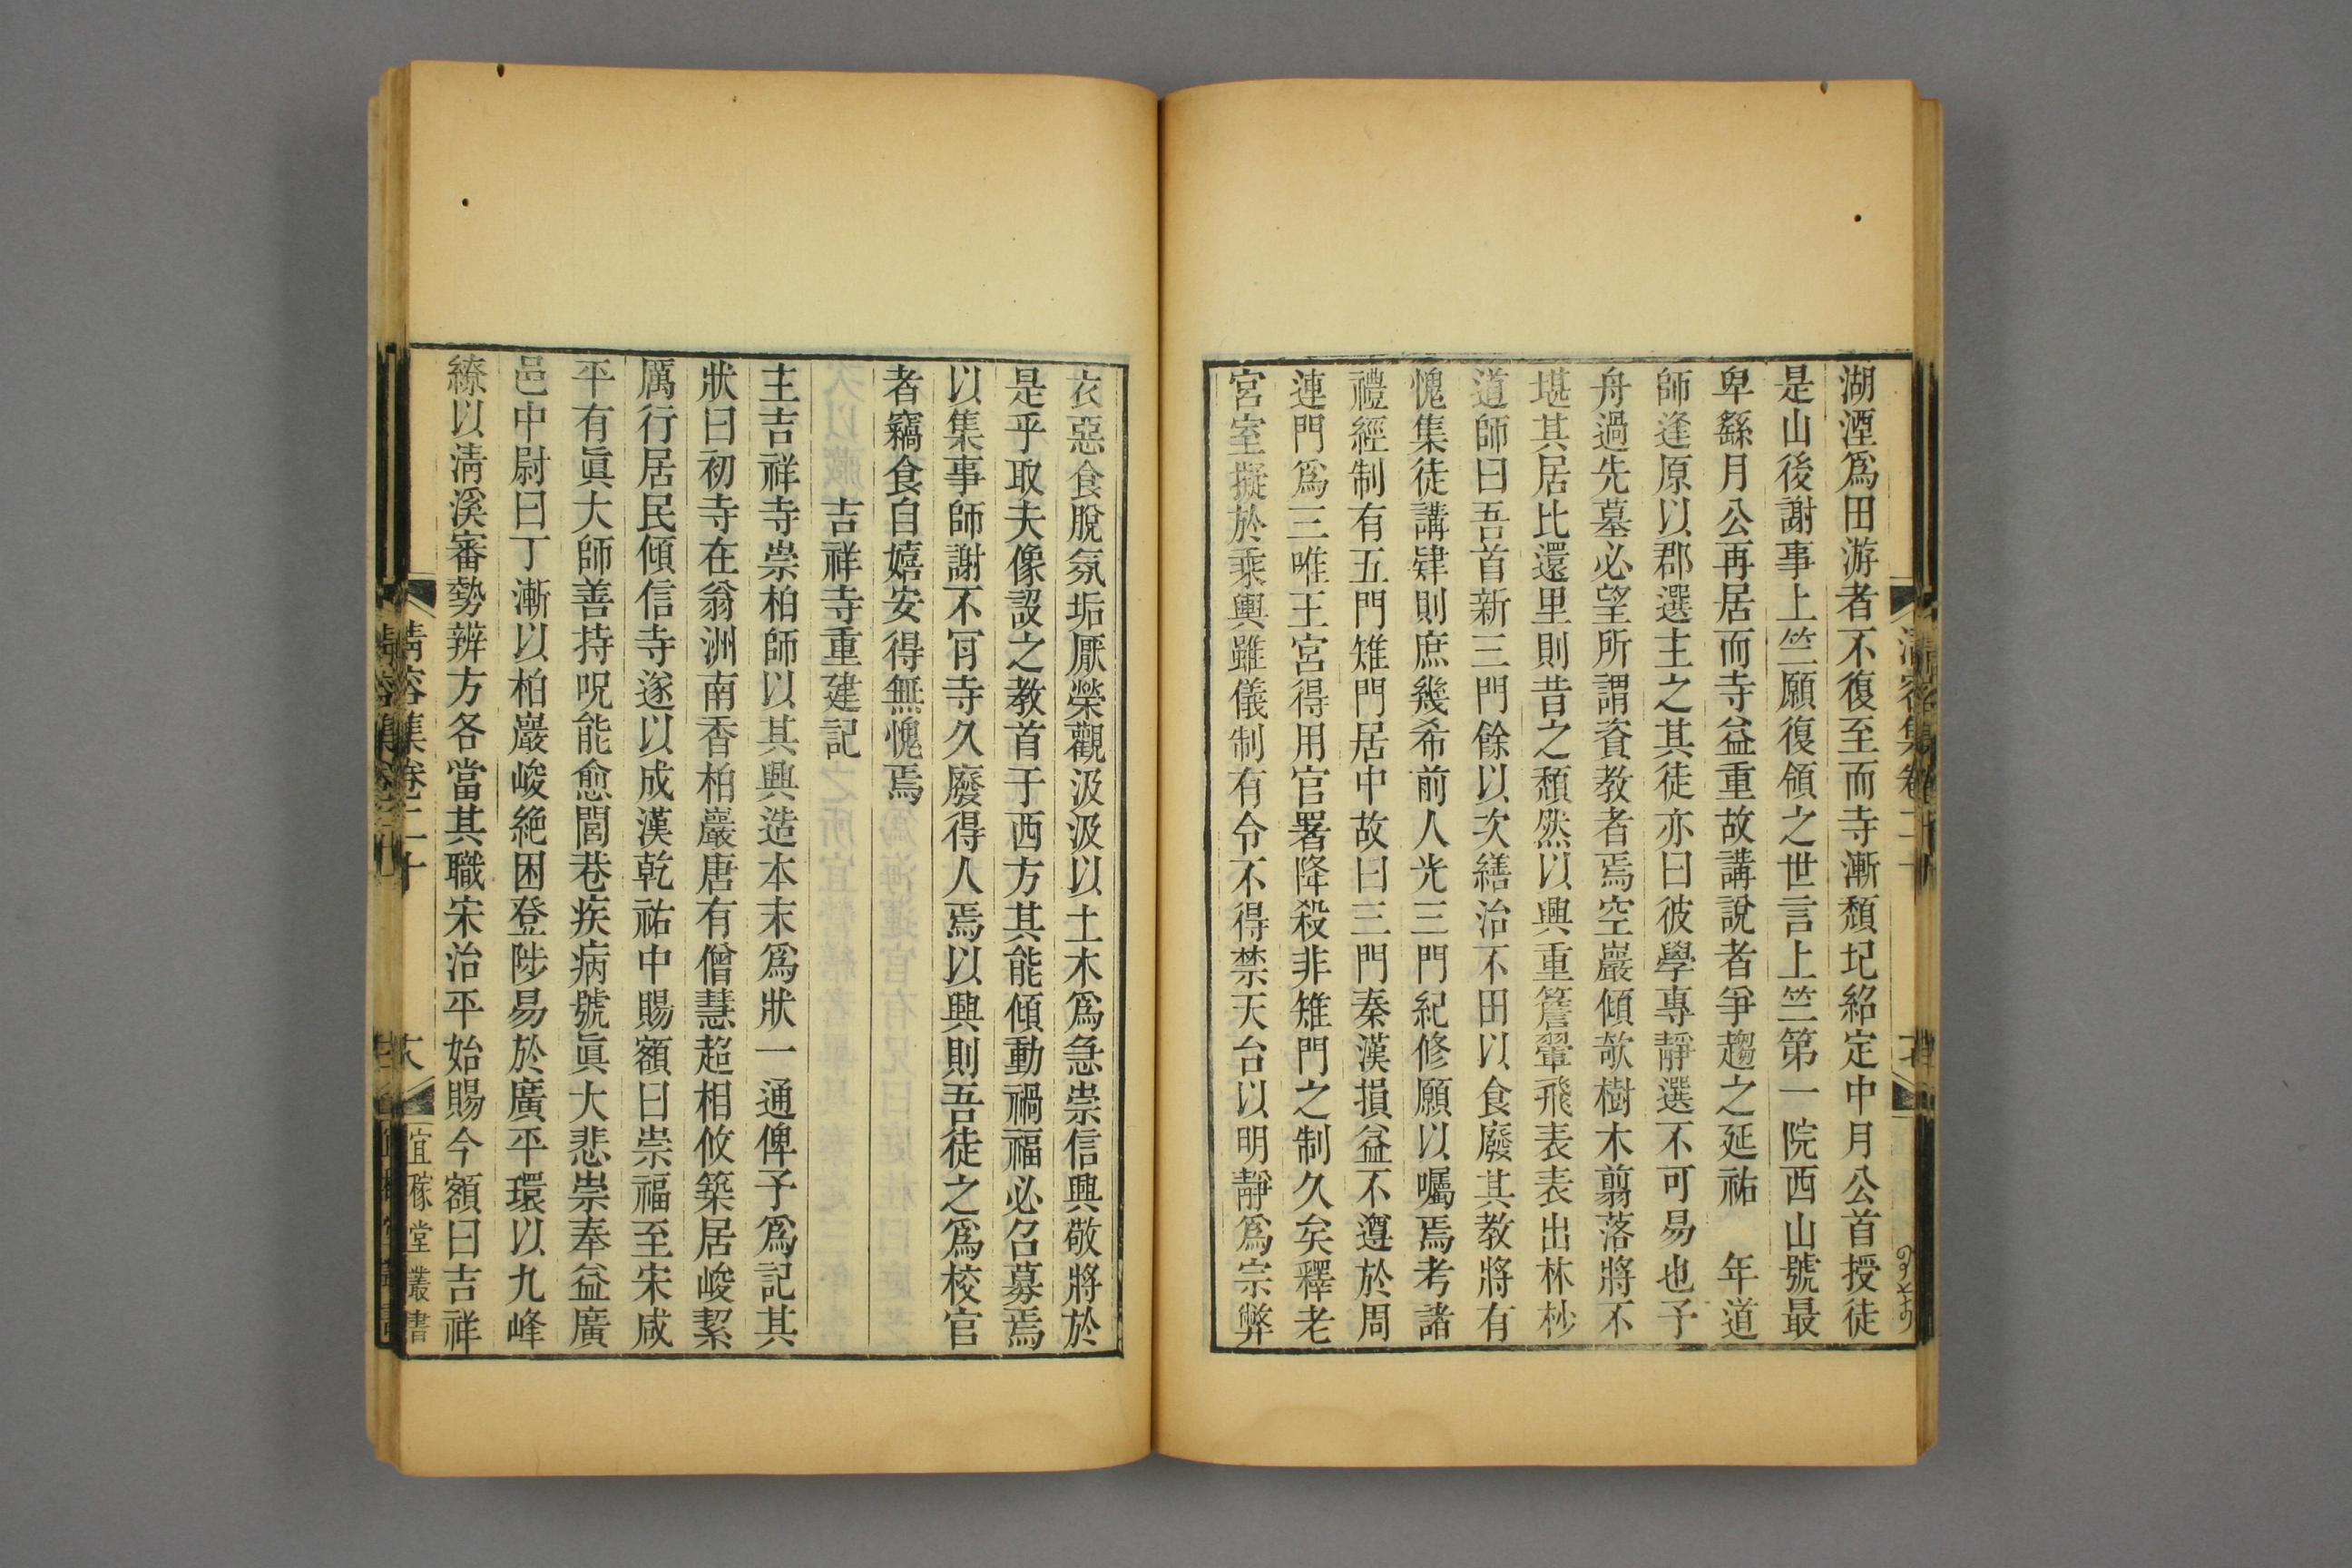 湖湮爲田游者不復至而寺漸頹圮紹定中月公首授徒
是山後謝事上竺願復領之世言上竺第一院西山號最
卑繇月公再居而寺益重故講說者爭趨之延祐　年道
師逢原以郡選主之其徒亦曰彼學專靜選不可易也予
舟過先墓必望所謂資教者焉空巖傾欹樹木翦落將不
堪其居比還里則昔之頹然以興重簷翬飛表表出林杪
道師曰吾首新三門餘以次繕治不田以食廢其教將有
愧集徒講肄則庶幾希前人光三門紀修願以囑焉考諸
禮經制有五門雉門居中故曰三門秦漢損益不遵於周
連門爲三唯王宮得用官署降殺非雉門之制久矣釋老
宮室擬於乘輿雖儀制有令不得禁天台以明靜爲宗弊
衣惡食脫氛垢厭榮觀汲汲以土木爲急崇信興敬將於
是乎取夫像設之教首于西方其能傾動禍福必召募焉
以集事師謝不肎寺久廢得人焉以興則吾徒之爲校官
者竊食自嬉安得無愧焉
吉祥寺重建記
主吉祥寺崇柏師以其興造本末爲狀一通俾予爲記其
狀曰初寺在翁洲南香柏巖唐有僧慧超相攸築居峻絜
厲行居民傾信寺遂以成漢乾祐中賜額曰崇福至宋咸
平有眞大師善持呪能愈閭巷疾病號眞大悲崇奉益廣
邑中尉曰丁漸以柏巖峻絕困登陟易於廣平環以九峰
繚以清溪審勢辨方各當其職宋治平始賜今額曰吉祥
清容集卷二十
宜稼堂叢書